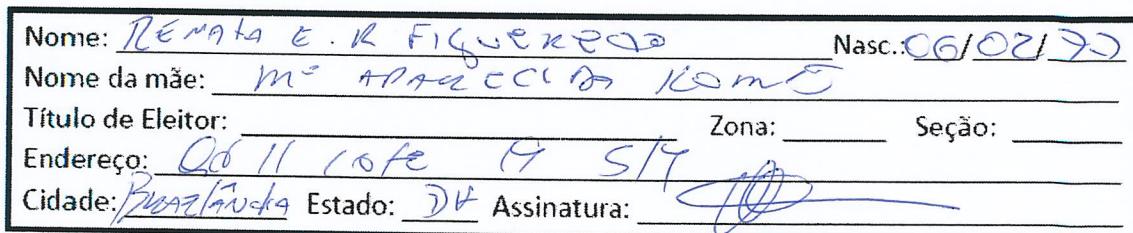 Nome: RENATA E. R FIGUEREDO Nasc.: 06/02/90
Nome da mãe: Mª APARECIDA ROMÃ
Título de Eleitor: Zona: Seção:
Endereço: Qd 11 lote
Cidade: Brazlândia Estado: DF Assinatura: